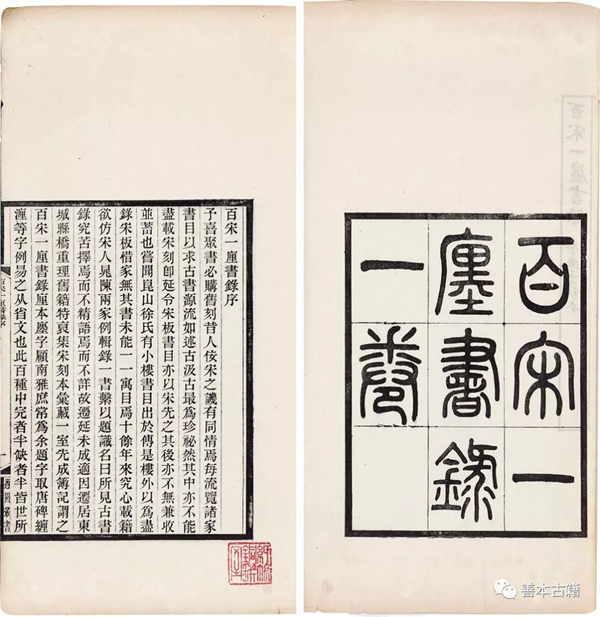 百宋一
廛書錄
一卷
百宋一厘書錄序
予喜聚書必購舊刻昔人佞宋之譏有同情焉每流覽諸家
書目以求古書源流如述古汲古最為珍祕然其中亦不能
盡載宋刻卽延令宋板書目亦以宋先之其後亦不無兼收
並蓄也嘗聞崑山徐氏有小樓書目出於傳是樓外以為盡
錄宋板惜家無其書未能一一寓目焉十餘年來究心載籍
欲仿宋人晁陳兩家例輯錄一書繫以題識名曰所見古書
錄究苦擇焉而不精語焉而不詳故遷延未成適因遷居東
城縣橋重理舊籍特裒集宋刻本彙藏一室先成簿記謂之
百宋一厘書錄厘本廛字顧南雅庶常為余題字取唐碑纏
瀍等字例易之从省文也此百種中完者半缺者半皆世所
百宋一厘書錄序
一
適園叢書
善本古籍